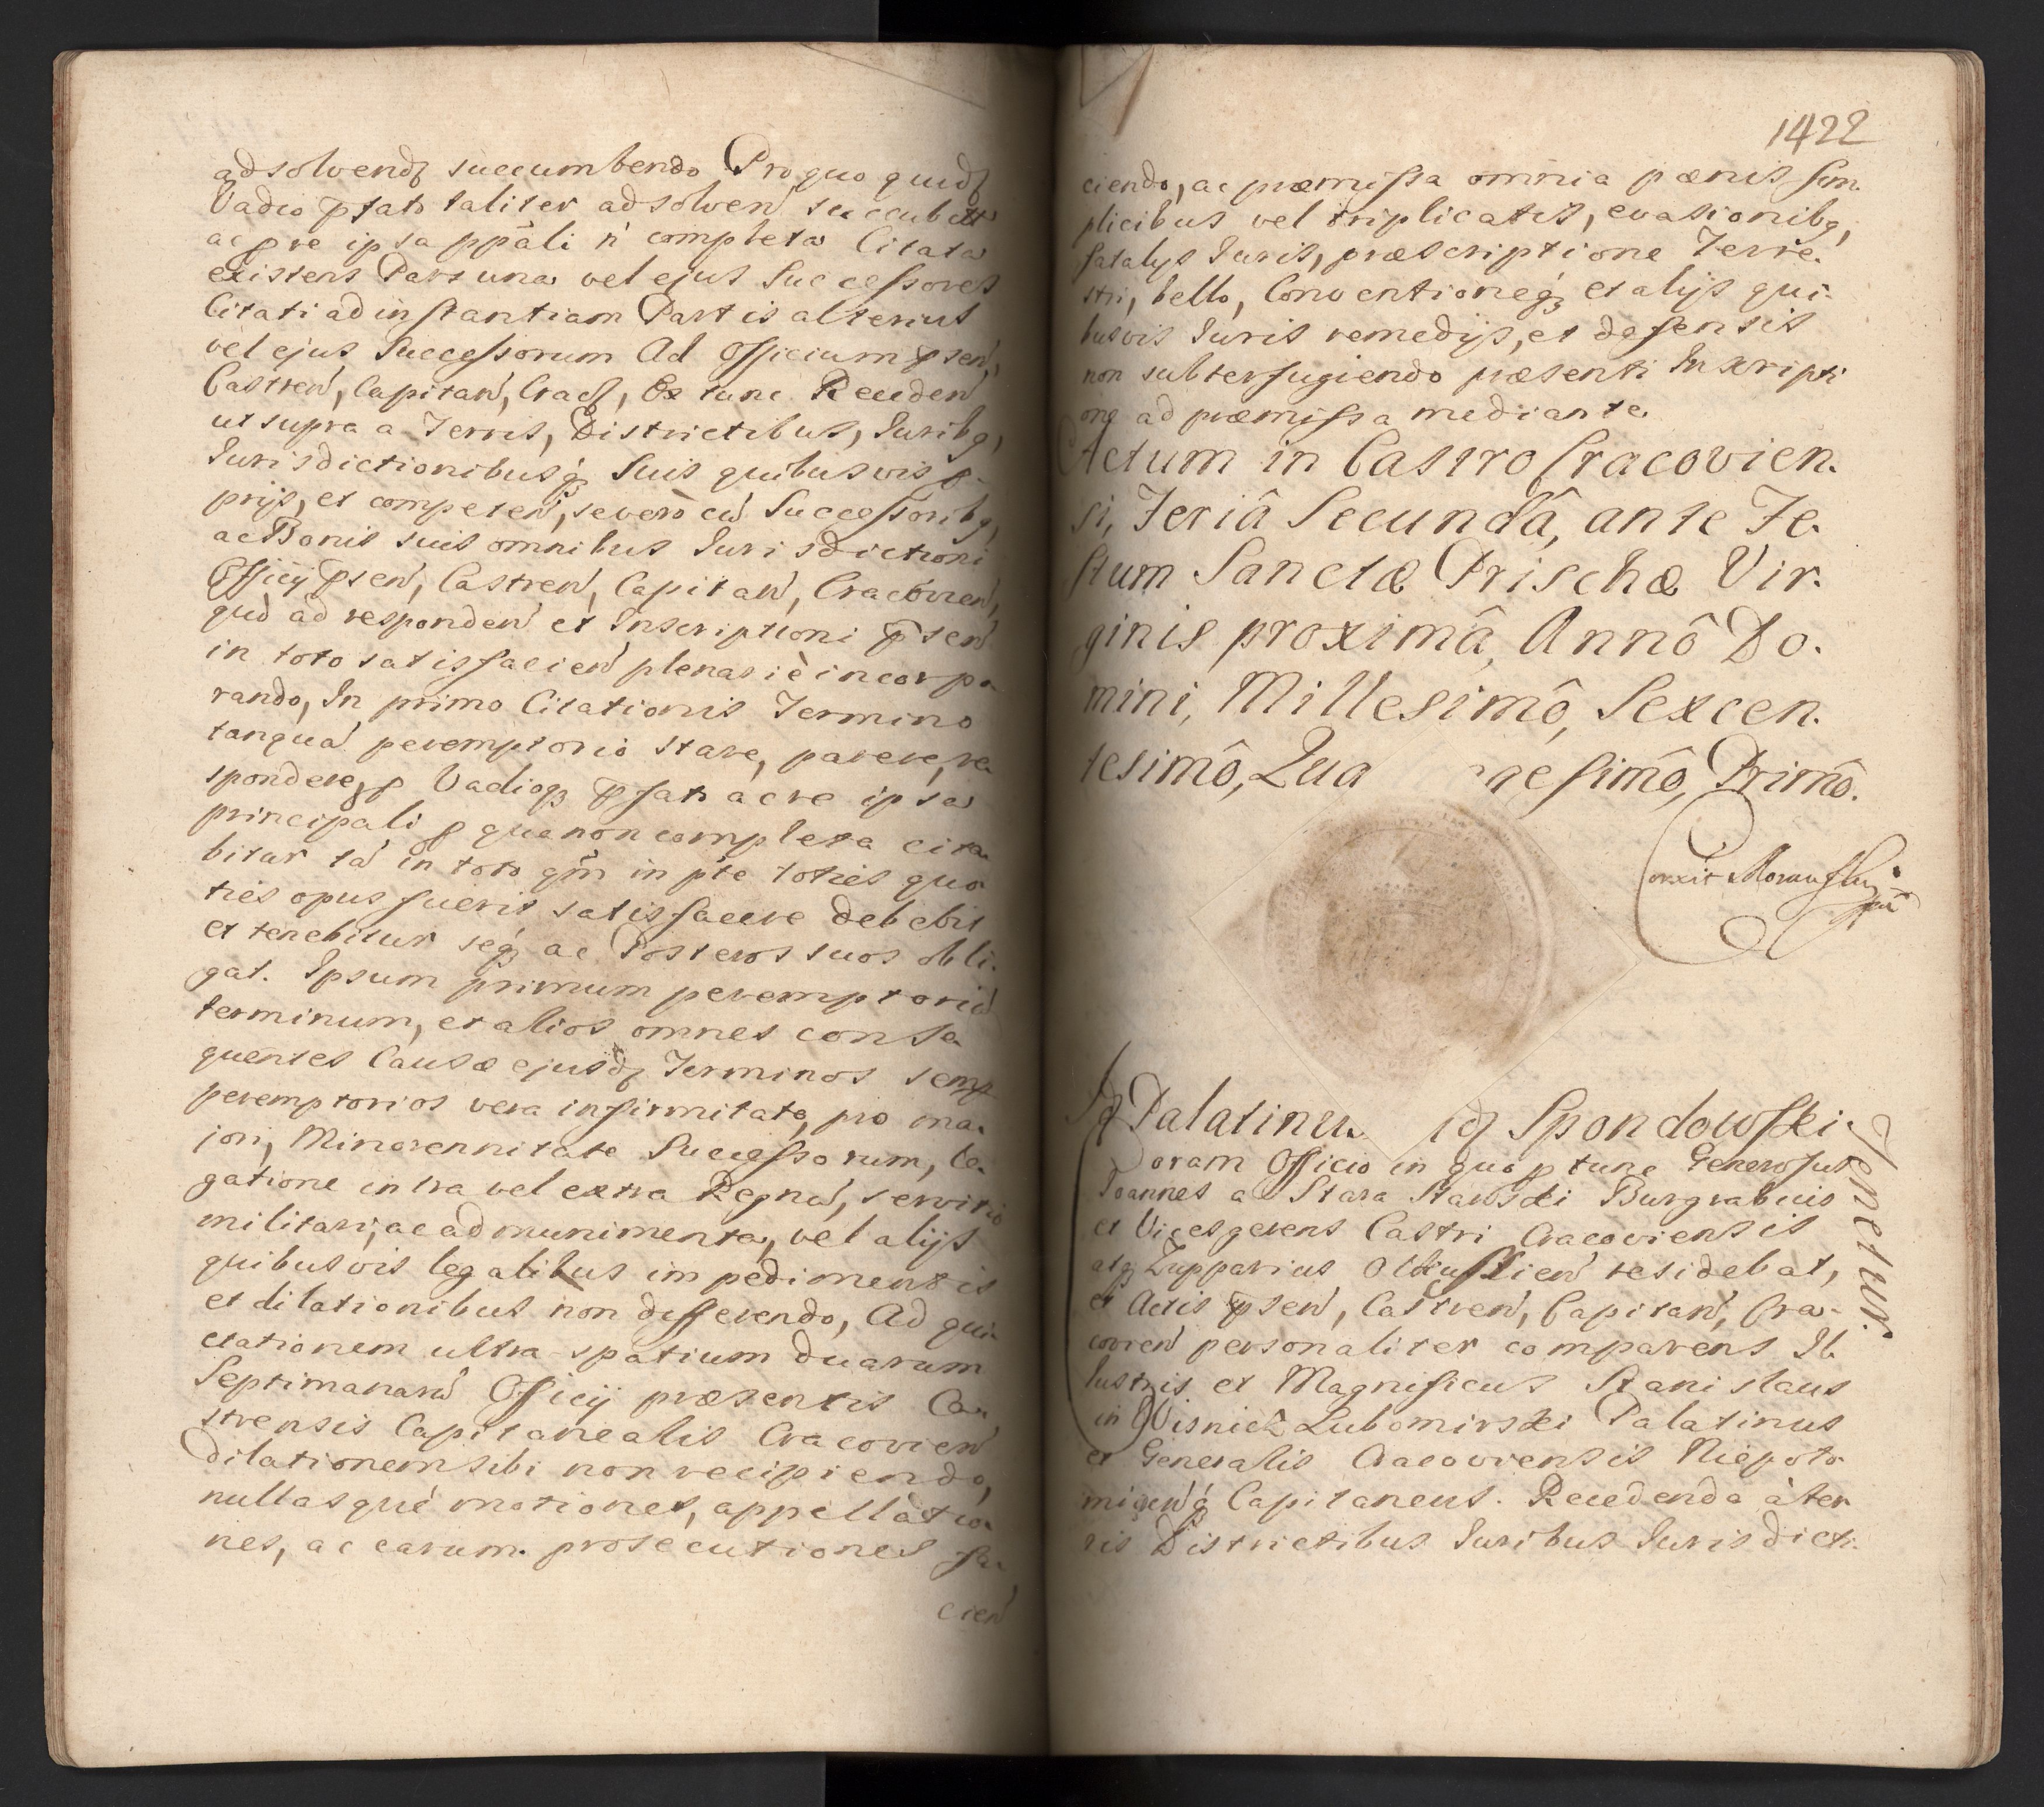 adsolvendȝ succumbendo Pro quo quidȝ
Vadio p̄fato taliter adsolven̄ succubitt
ac pre ipsa pp̄ali n̄ completa Citata
existens Pars una vel ejus Successores
Citati ad instantiam Partis alterius
vel ejus Successorum Ad Officium p̄sen̄,
Castren̄, Capitan̄, Cracȝ, Ex tunc Receden̄
ut supra a Terris, Districtibus, Juribq,
Jurisdictionibusq́ȝ Suis quibusvis p-
prijs, et competen̄, severò cū Successoribq,
ac Bonis suis omnibus Jurisdictioni
Officij p̄sen̄, Castren̄, Capitan̄, Cracovien̄,
quò ad responden̄ et Inscriptioni p̄sen̄
in toto satisfacien̄ plenariè incorpo-
rando, In primo Citationis Termino
tanquā peremptorio stare, parere, re-
spondere, p Vadioqȝ p̄fato ac re ipsa
principali p qua non completa cita-
bitur tā in toto qm̄ in p̄te toties quo-
ties opus fuerit satisfacere debebit
et tenebitur seq́ȝ ac Posteros suos obli-
gat. Ipsum primum peremptoriū
terminum, et alios omnes conse-
quentes Causæ ejusdȝ Terminos semp
peremptorios vera infirmitate, pro ma-
jori, Minorennitate Successorum, le-
gatione intra vel extra Regnū, servitio
militari, ac ad munimenta, vel alijs
quibusvis legalibus impedimentis
et dilationibus non differendo, Ad qui-
etationem ultra spatium duarum
Septimanarū Officij præsentis Ca-
strensis Capitanealis Cracovien̄
dilationem sibi non recipiendo,
nullasqué motiones, appellatio-
nes, ac earum prosecutiones fa-
cien̄
1422
ciendo, ac præmissa omnia pœnis sim-
plicibus vel triplicatis, evasionibq,
fatalijs Juris, præscriptione Terre-
stri, bello, Conventioneq́ȝ et alijs qui-
busvis Juris remedijs, et defensis
non subterfugiendo præsenti Inscripti
one ad præmissa mediante.
Actum in Castro Cracovien-
si, Feriâ Secundâ, ante Fe-
stum Sanctæ Prischæ Vir-
ginis proximâ, Annô Do-
mini, Millesimô, Sexcen-
tesimô, Qua gesimô, Primô.
Correxit Morawski
Palatinu Spondowski
Tenetur.
Coram Officio in quo p tunc Generosus
Joannes a Stara Starwski Burgrabius
et Vicesgerens Castri Cracoviensis
atqȝ Zupparius Olkussien̄ residebat,
et Actis p̄sen̄, Castren̄, Capitan̄, Cra-
covien̄ personaliter comparens Il-
lustris et Magnificus Stanislaus
in Wisnicz Lubomirski Palatinus
et Generalis Cracoviensis Niepoto-
micien̄q́ȝ Capitaneus. Recedendo à ter
ris Districtibus Juribus Jurisdicti-